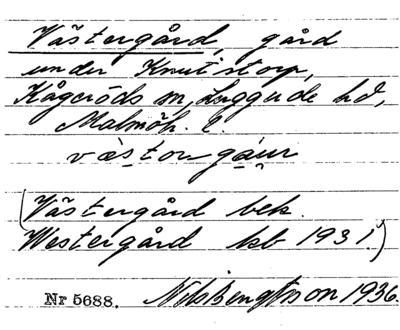 Västergård, gård
under Knutstorp,
Kågeröds sn, Luggude hd,
Malmöh. l.
västor gáur
(Västergård bek.
Westergård kb 1931.)
Nr 5688. Nils Bengtsson 1936.